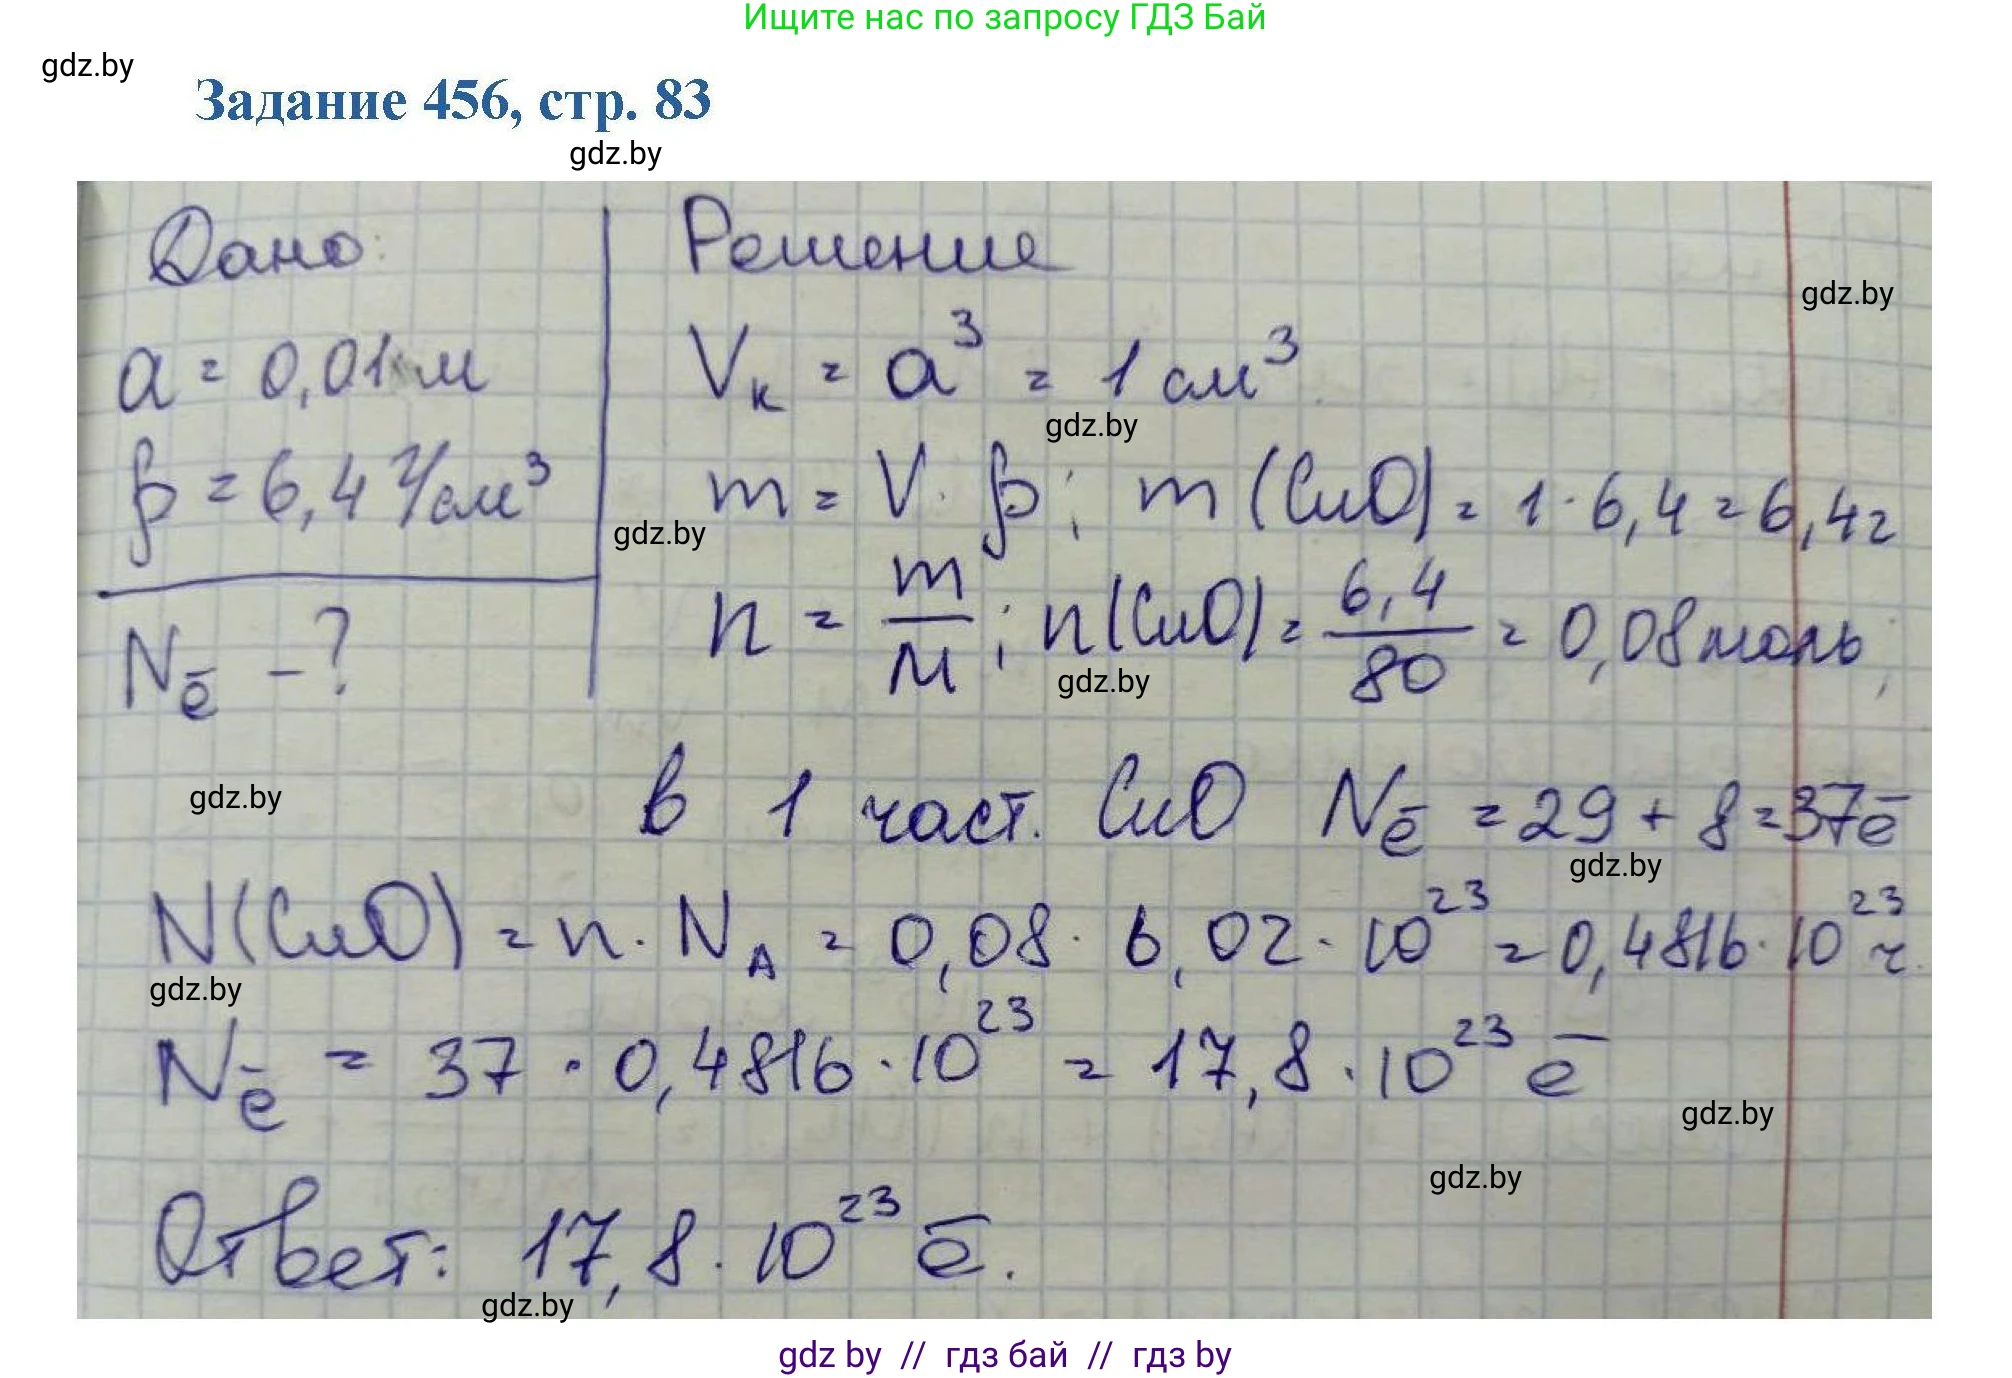 Ищите нас по запросу ГДЗ Бай
gdz.by
Задание 456, стр. 83
gdz.by
Дано:
a = 0,01 м
ρ = 6,4 г/см³
Nē - ?
Решение
gdz.by
Vк = a³ = 1 см³
gdz.by
m = V · ρ; m (CuO) = 1 · 6,4 = 6,4 г
gdz.by
n = m/M; n(CuO) = 6,4/80 = 0,08 моль;
gdz.by
gdz.by
в 1 част. CuO Nē = 29 + 8 = 37ē
gdz.by
N(CuO) = n · NA = 0,08 · 6,02 · 10²³ = 0,4816 · 10²³ ч.
gdz.by
Nē = 37 · 0,4816 · 10²³ = 17,8 · 10²³ ē
gdz.by
gdz.by
Ответ: 17,8 · 10²³ ē.
gdz.by
gdz by // гдз бай // гдз by